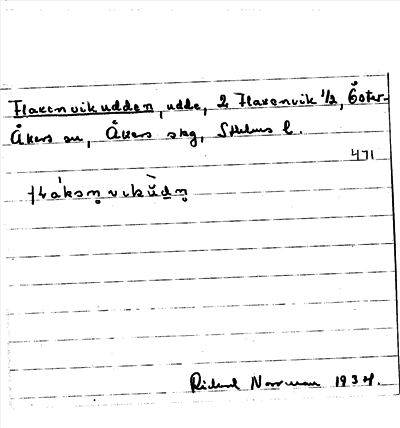 Flaxenvikudden, udde, 2 Flaxenvik 1/2, Öster-
Åkers sn, Åkers skg, Sthlms l.
471
fláksn̥vikùdn̥
Rickard Norrman 1934.